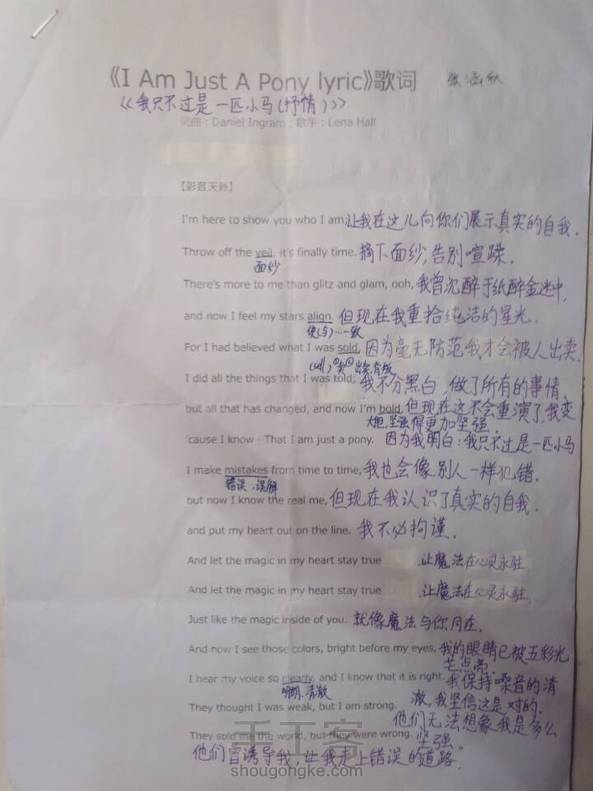 《I Am Just A Pony lyric》歌词 张涵秋
《我只不过是一匹小马(抒情)》
词曲：Daniel Ingram；歌手：Lena Hall
【彩音天籁】
I'm here to show you who I am 让我在这儿向你们展示真实的自我.
Throw off the veil, it's finally time. 摘下面纱,告别喧躁.
面纱
There's more to me than glitz and glam, ooh, 我曾沉醉于纸醉金迷中,
and now I feel my stars align. 但现在我重拾纯洁的星光.
使(与)…一致
For I had believed what I was sold, 因为毫无防范我才会被人出卖.
(sell) 出卖,背叛
I did all the things that I was told, 我不分黑白,做了所有的事情
but all that has changed, and now I'm bold, 但现在这不会重演了,我变
大胆,坚强 得更加坚强.
'cause I know—That I am just a pony. 因为我明白:我只不过是一匹小马
I make mistakes from time to time, 我也会像别人一样犯错.
错误,误解
but now I know the real me, 但现在我认识了真实的自我.
and put my heart out on the line. 我不必拘谨.
And let the magic in my heart stay true 让魔法在心灵永驻.
And let the magic in my heart stay true 让魔法在心灵永驻.
Just like the magic inside of you. 就像魔法与你同在.
And now I see those colors, bright before my eyes, 我的眼睛已被五彩光
芒点亮.
I hear my voice so clearly, and I know that it is right. 我保持嗓音的清
明朗,清澈 澈,我坚信这是对的.
They thought I was weak, but I am strong. 他们无法想象我是多么
坚强
They sold me the world, but they were wrong.
他们曾诱导我,让我走上错误的道路.
手工客
shougongke.com